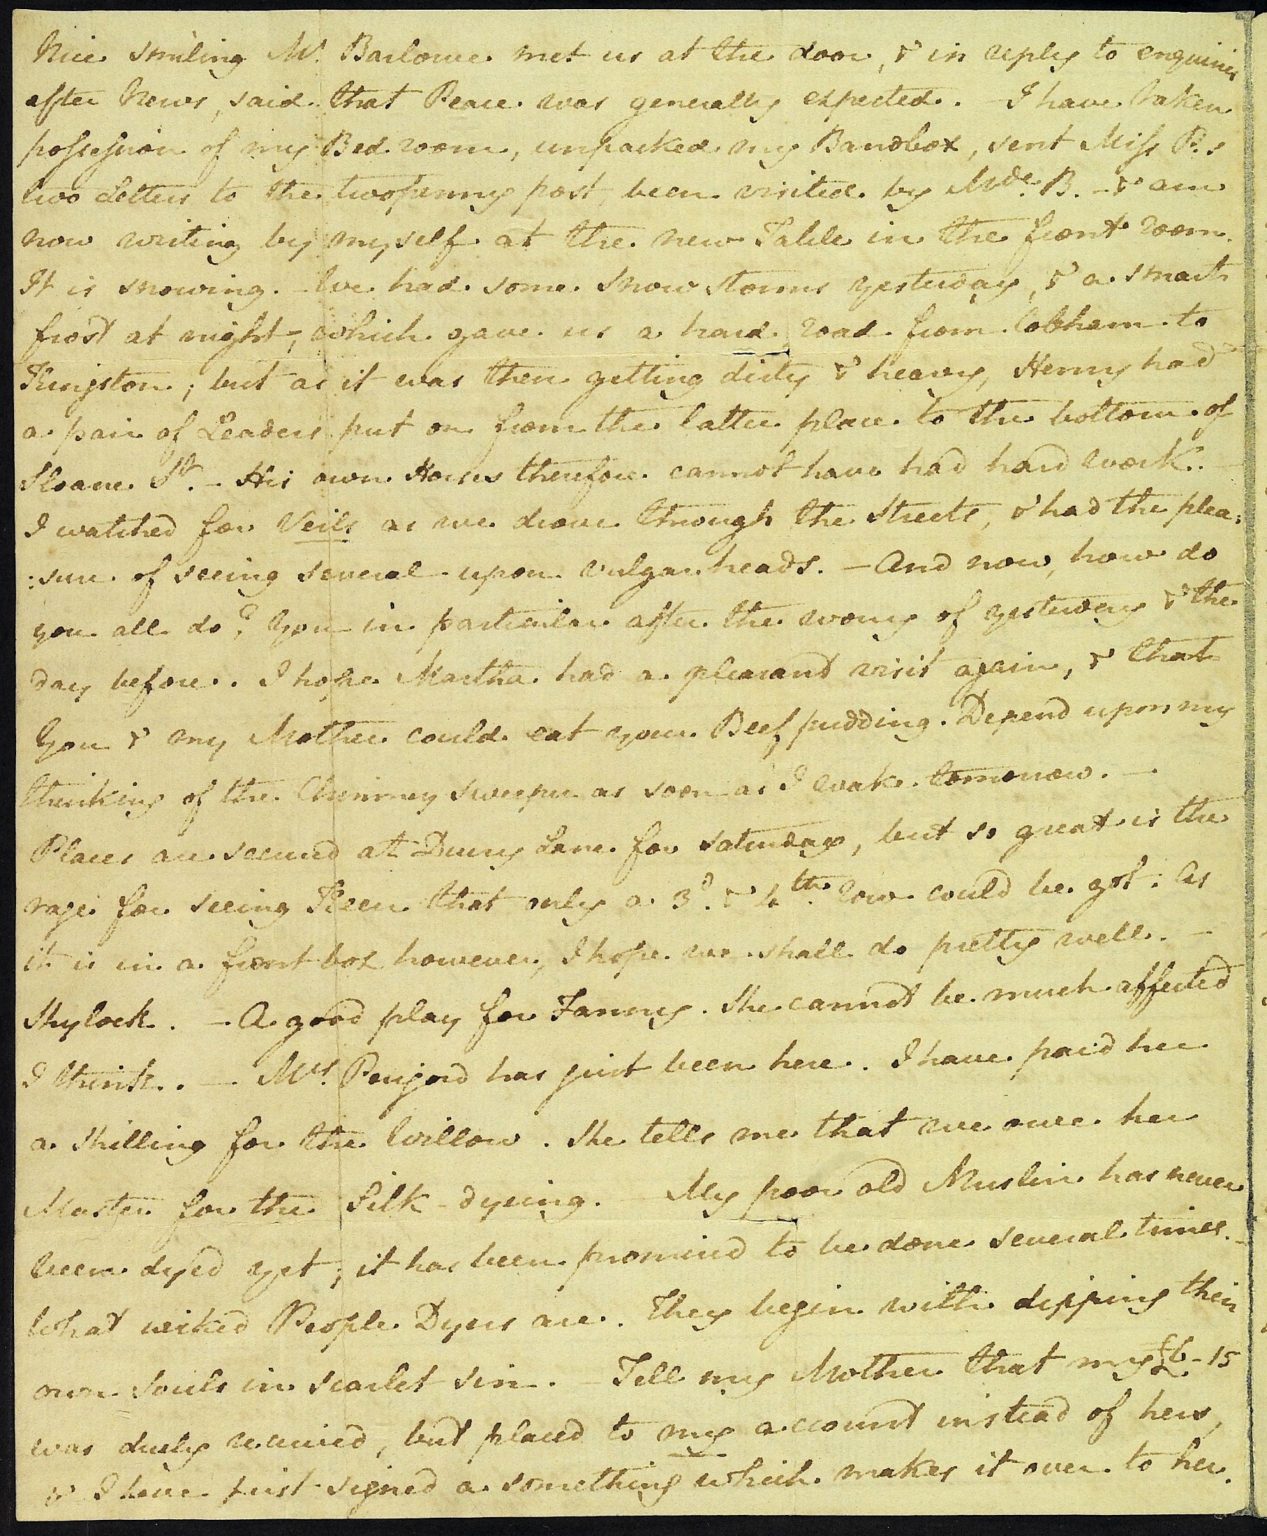 Nice smiling Mr. Barlowe met us at the door, & in reply to enquiries
after News, said that Peace was generally expected. – I have taken
possession of my Bed room, unpacked my Bandbox, sent Miss P.s
two Letters to the twopenny post been visited by Mde. B. – & am
now writing by myself at the new Table in the front room.
It is snowing. – We had some Snow storms yesterday, & a smart
frost at night, which gave us a hard road from Cobham to
Kingston; but as it was then getting dirty & heavy, Henry had
a pair of Leaders put on from the latter place to the bottom of
Sloane St. – His own Horses therefore cannot have had hard work. –
I watched for Veils as we drove through the Streets, & had the plea:
:sure of seeing several upon vulgar heads. – And now, how do
you all do? You in particular after the worry of yesterday & the
day before. I hope Martha had a pleasant visit again, & that
You & my Mother could eat your Beef pudding. Depend upon my
thinking of the Chimney Sweeper as soon as I wake tomorrow. –
Places are secured at Drury Lane for Saturday, but so great is the
rage for seeing Keen that only a 3d. & 4th. row could be got. As
it is in a front box however, I hope we shall do pretty well. –
Shylock. – A good play for Fanny. She cannot be much affected
I think. – Mrs. Perigord has just been here. I have paid her
a Shilling for the Willow. She tells me that we owe her
Master for the Silk-dyeing. – My poor old Muslin has never
been dyed yet; it has been promised to be done several times. –
What wicked People Dyers are. They begin with dipping their
own Souls in Scarlet Sin. – Tell my Mother that my £6 – 15
was duely received, but placed to my account instead of hers,
& I have just signed a something which makes it over to her.